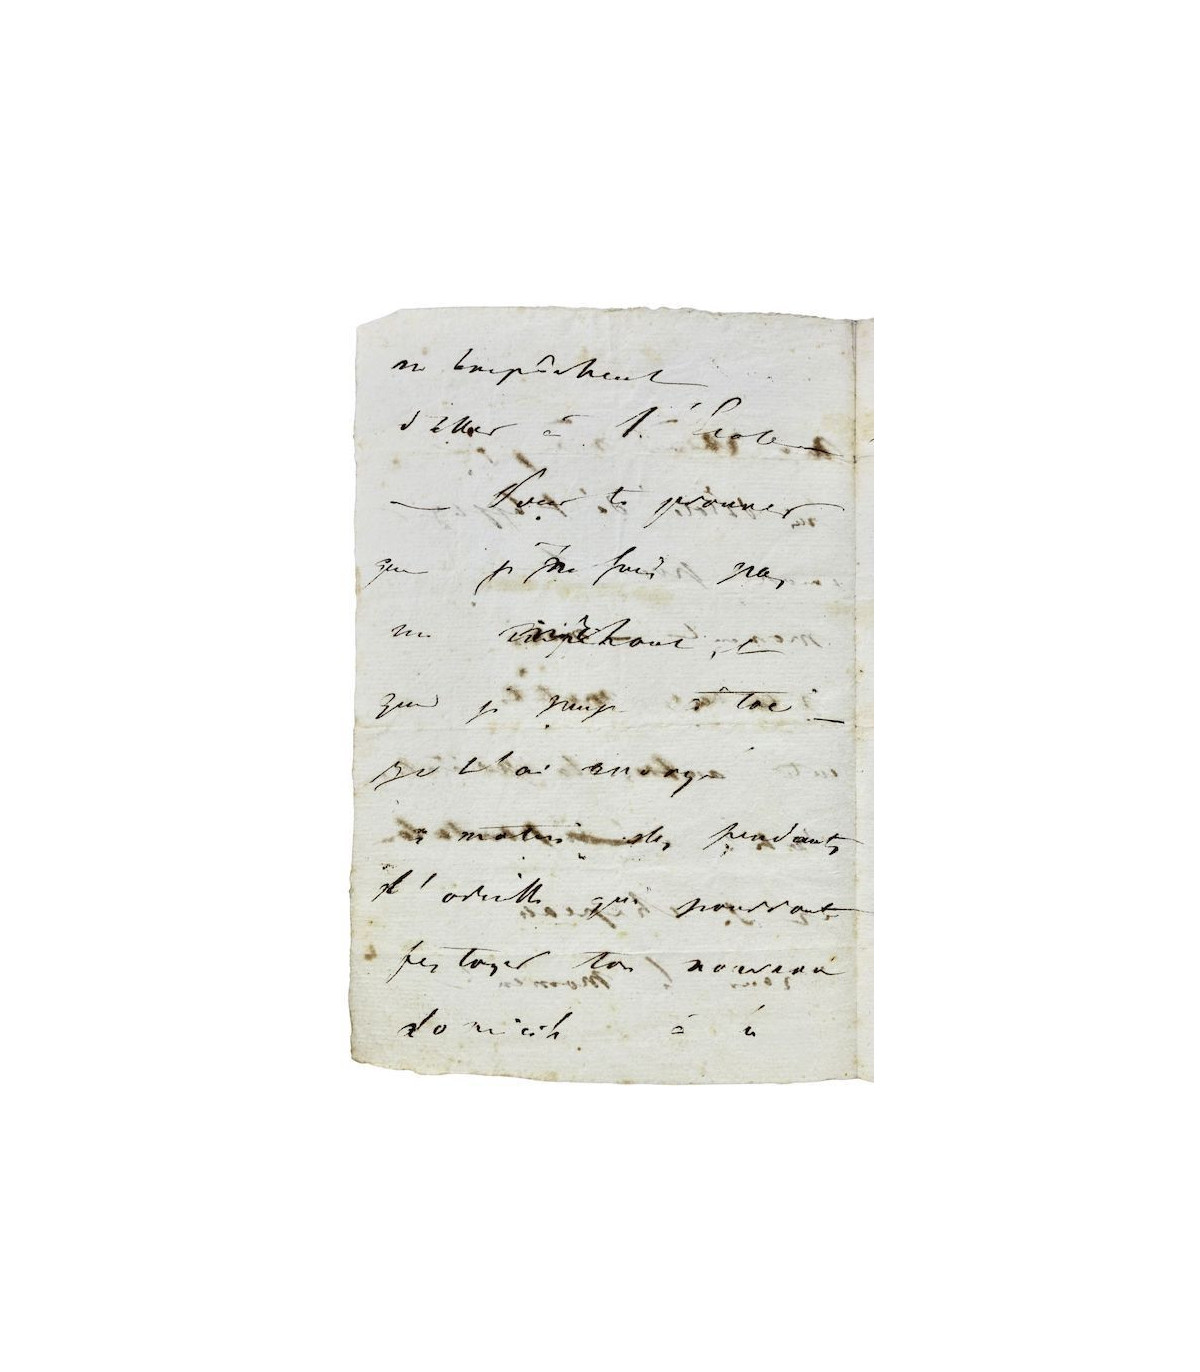 m'empêchent
d'aller à l'École
— Pour te prouver
que je ne suis pas
un méchant, et
que je songe à toi
je t'ai envoyé
ce matin des pendants
d'oreille qui pourront
festoyer ton nouveau
domicile à